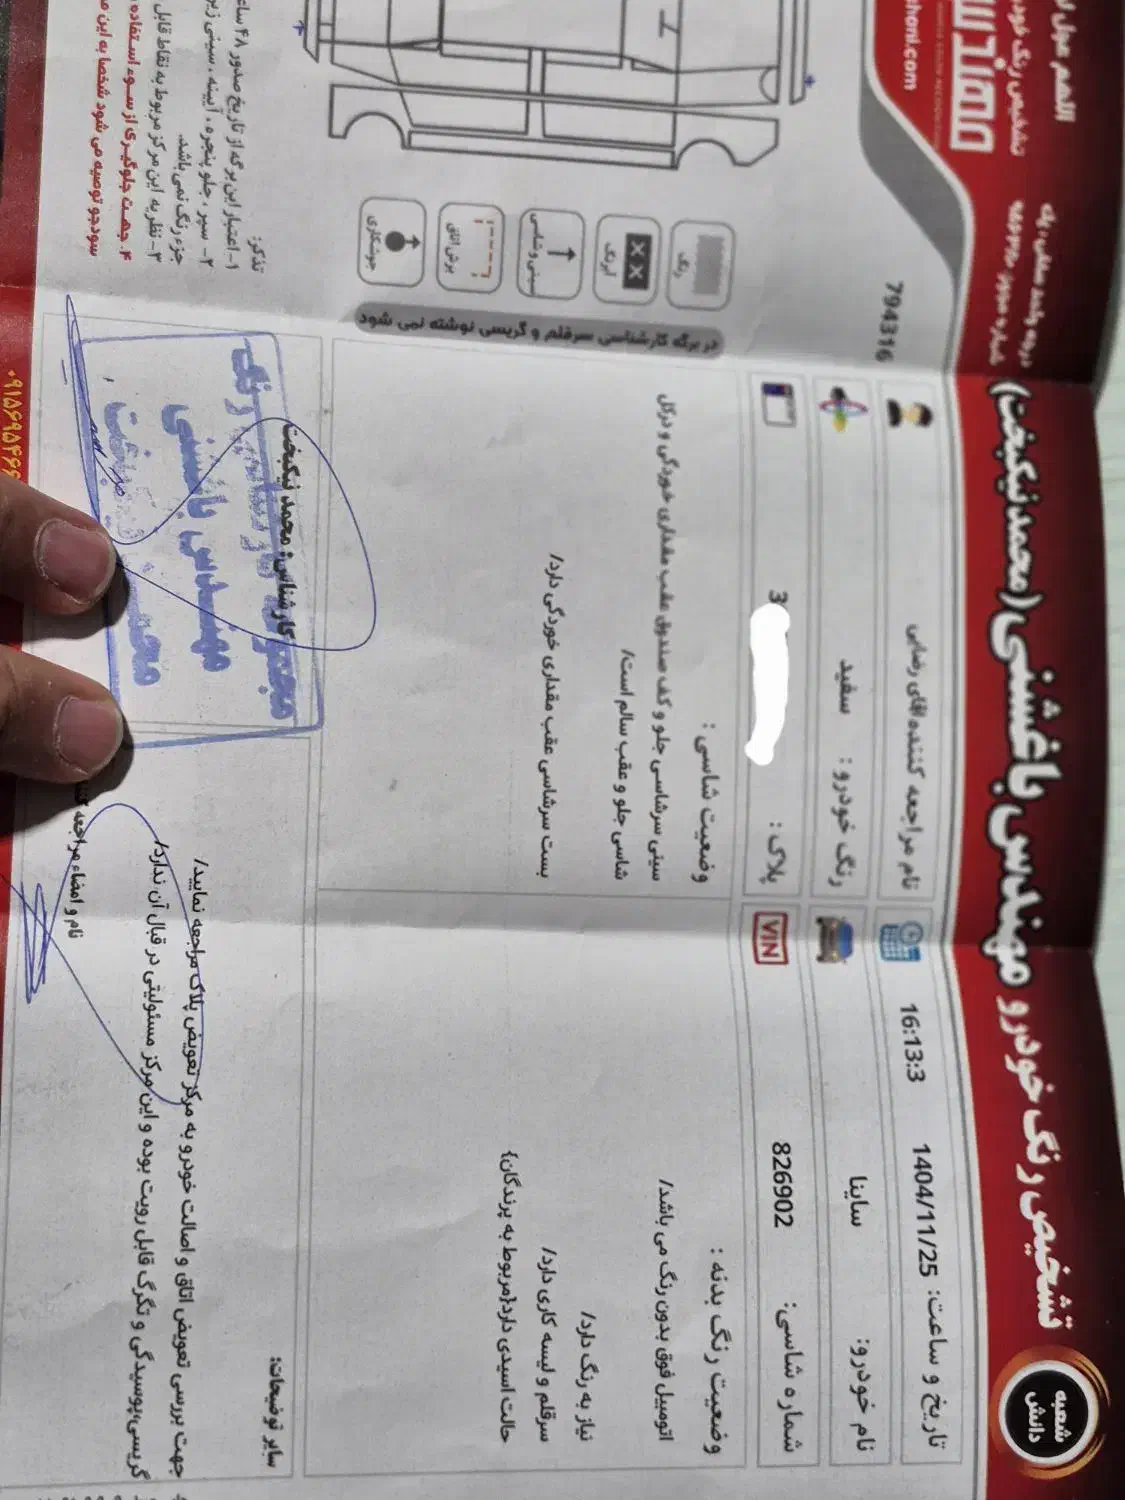 تشخیص رنگ خودرو مهندس باغشنی (محمد نیکبخت)
شعبه
دانش
794316
تاریخ و ساعت: 1404/11/25 16:13:3
نام مراجعه کننده: آقای رضایی
نام خودرو: ساینا
رنگ خودرو: سفید
شماره شاسی: 826902
VIN
پلاک: 3
وضعیت رنگ بدنه:
اتومبیل فوق بدون رنگ می باشد/
نیاز به رنگ دارد/
سرقلم و لیسه کاری دارد/
حالت اسیدی دارد{مربوط به پرندگان}
وضعیت شاسی:
سینی سرشاسی جلو و کف صندوق عقب مقداری خوردگی و درگل
شاسی جلو و عقب سالم است/
بست سرشاسی عقب مقداری خوردگی دارد/
رنگ
لیرنگ
سینی و شاسی
برش اتاق
جوشکاری
در برگه کارشناسی سرقلم و گریسی نوشته نمی شود
تذکر:
۱- اعتبار این برگه از تاریخ صدور ۴۸ ساع
۲- سپر، جلو پنجره، آیینه، سینی زیر
جزء رنگ نمی باشد.
۳- نظریه این مرکز مربوط به نقاط قابل
۴. جهت جلوگیری از سوء استفاده
سودجو توصیه می شود شخصا به این م
سایر توضیحات:
جهت بررسی تعویض اتاق و اصالت خودرو به مرکز تعویض پلاک مراجعه نمایید/
گریسی،پوسیدگی و تگرگ قابل رویت بوده و این مرکز مسئولیتی در قبال آن ندارد/
کارشناس: محمد نیکبخت
مهندس باغشنی
نام و امضاء مراجعه کننده